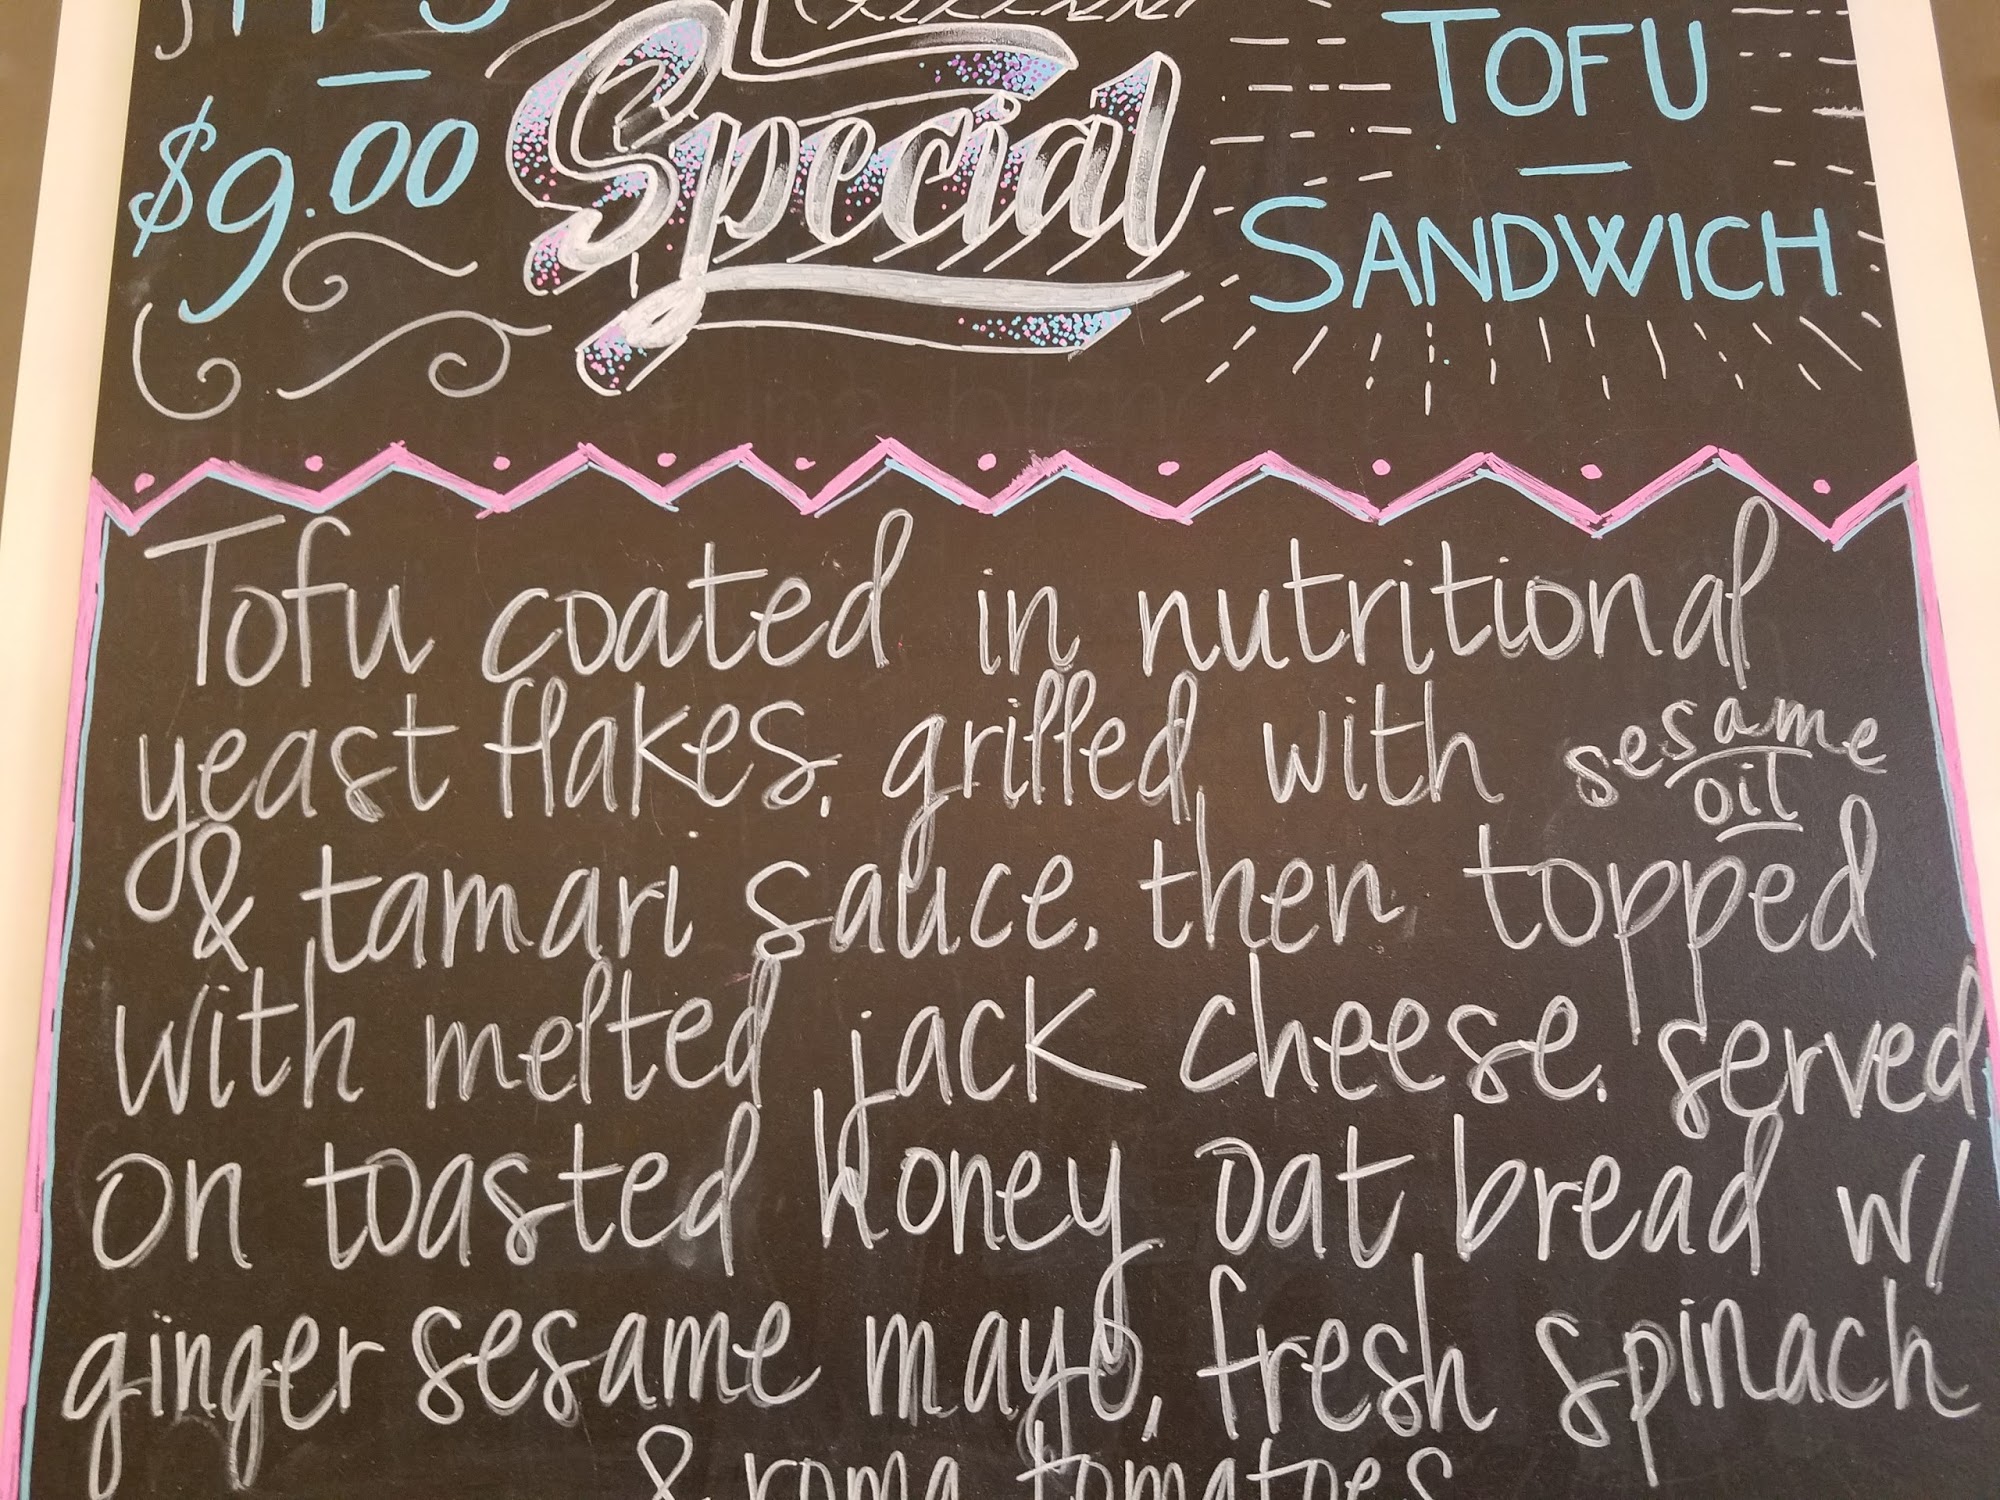 $9.00
Special
TOFU
SANDWICH
Tofu coated in nutritional
yeast flakes, grilled with sesame oil
& tamari sauce, then topped
with melted jack cheese, served
on toasted honey oat bread w/
ginger sesame mayo, fresh spinach
& roma tomatoes